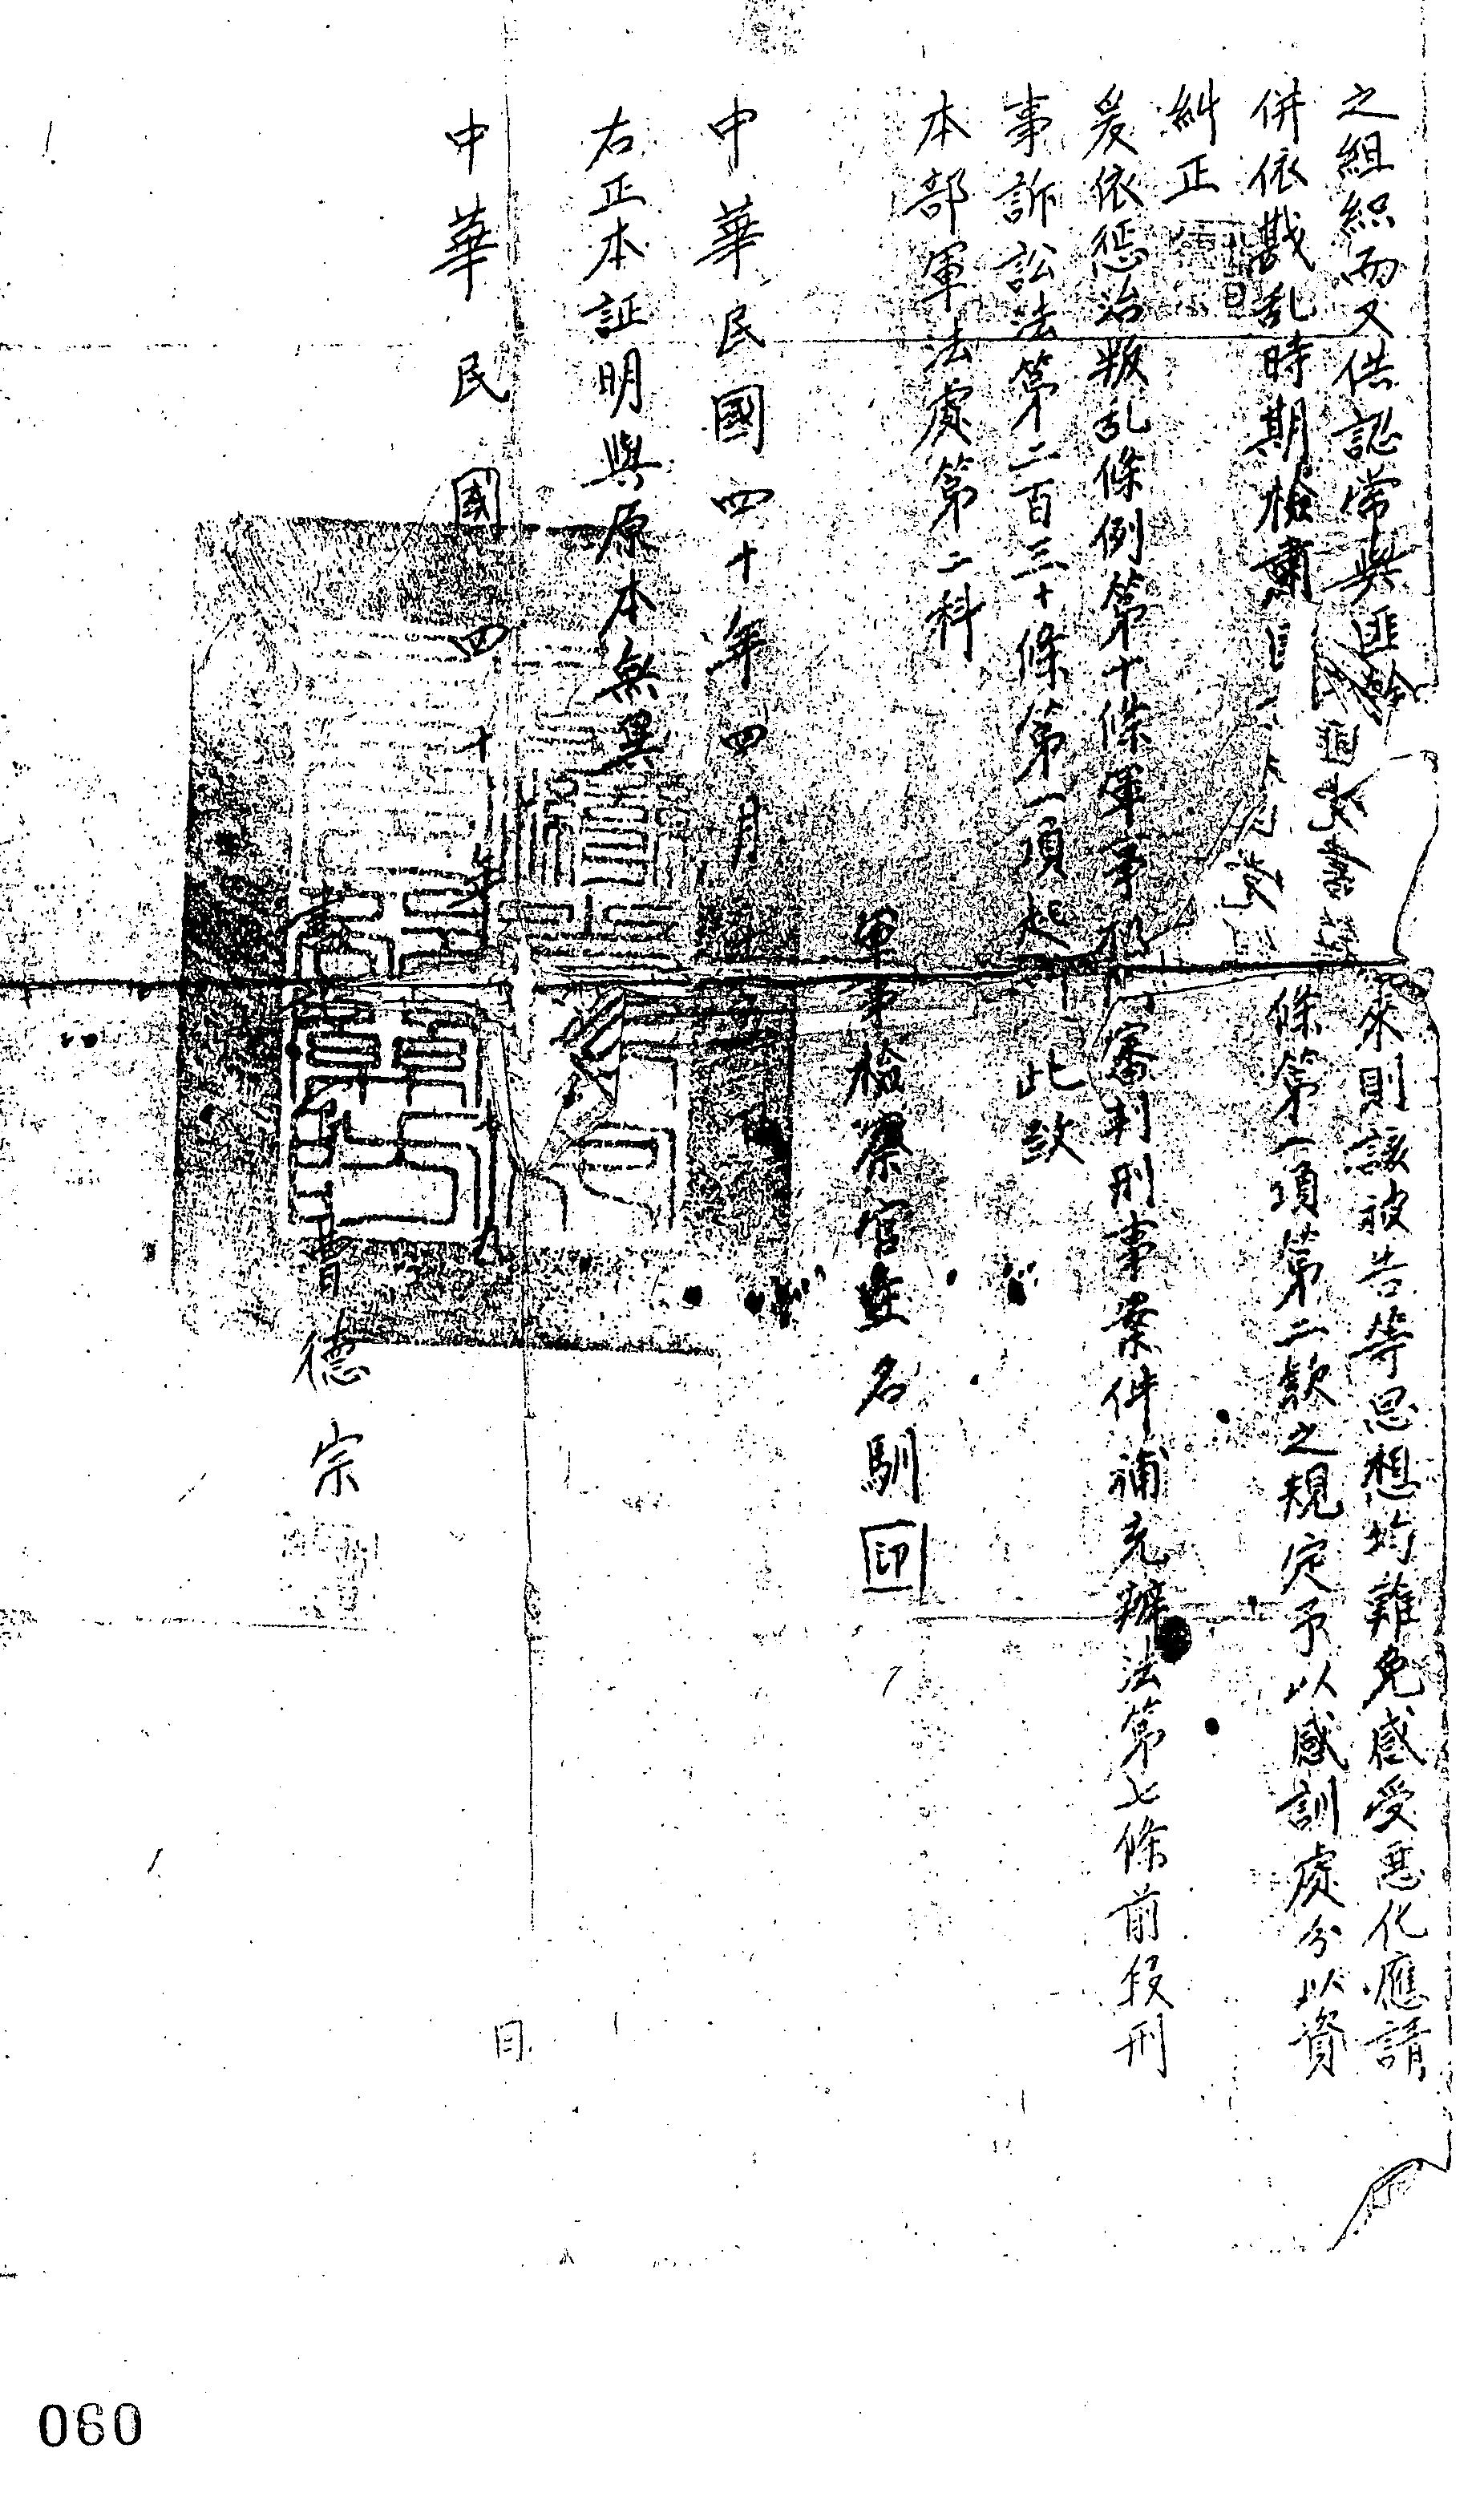 之組織而又供認常與匪幹 來則該被告等思想均難免感受惡化應請
併依戡乱時期檢肅 條第一項第二款之規定予以感訓處分以資
糾正
爰依懲治叛乱條例第十條軍事 審判刑事案件補充辦法第七條前段刑
事訴訟法第二百三十條第一項起 此致
本部軍法處第二科
軍事檢察官 名馴 印
中華民國四十年四月
右正本証明與原本無異
中華民國四十年 日
書 曹德宗
060